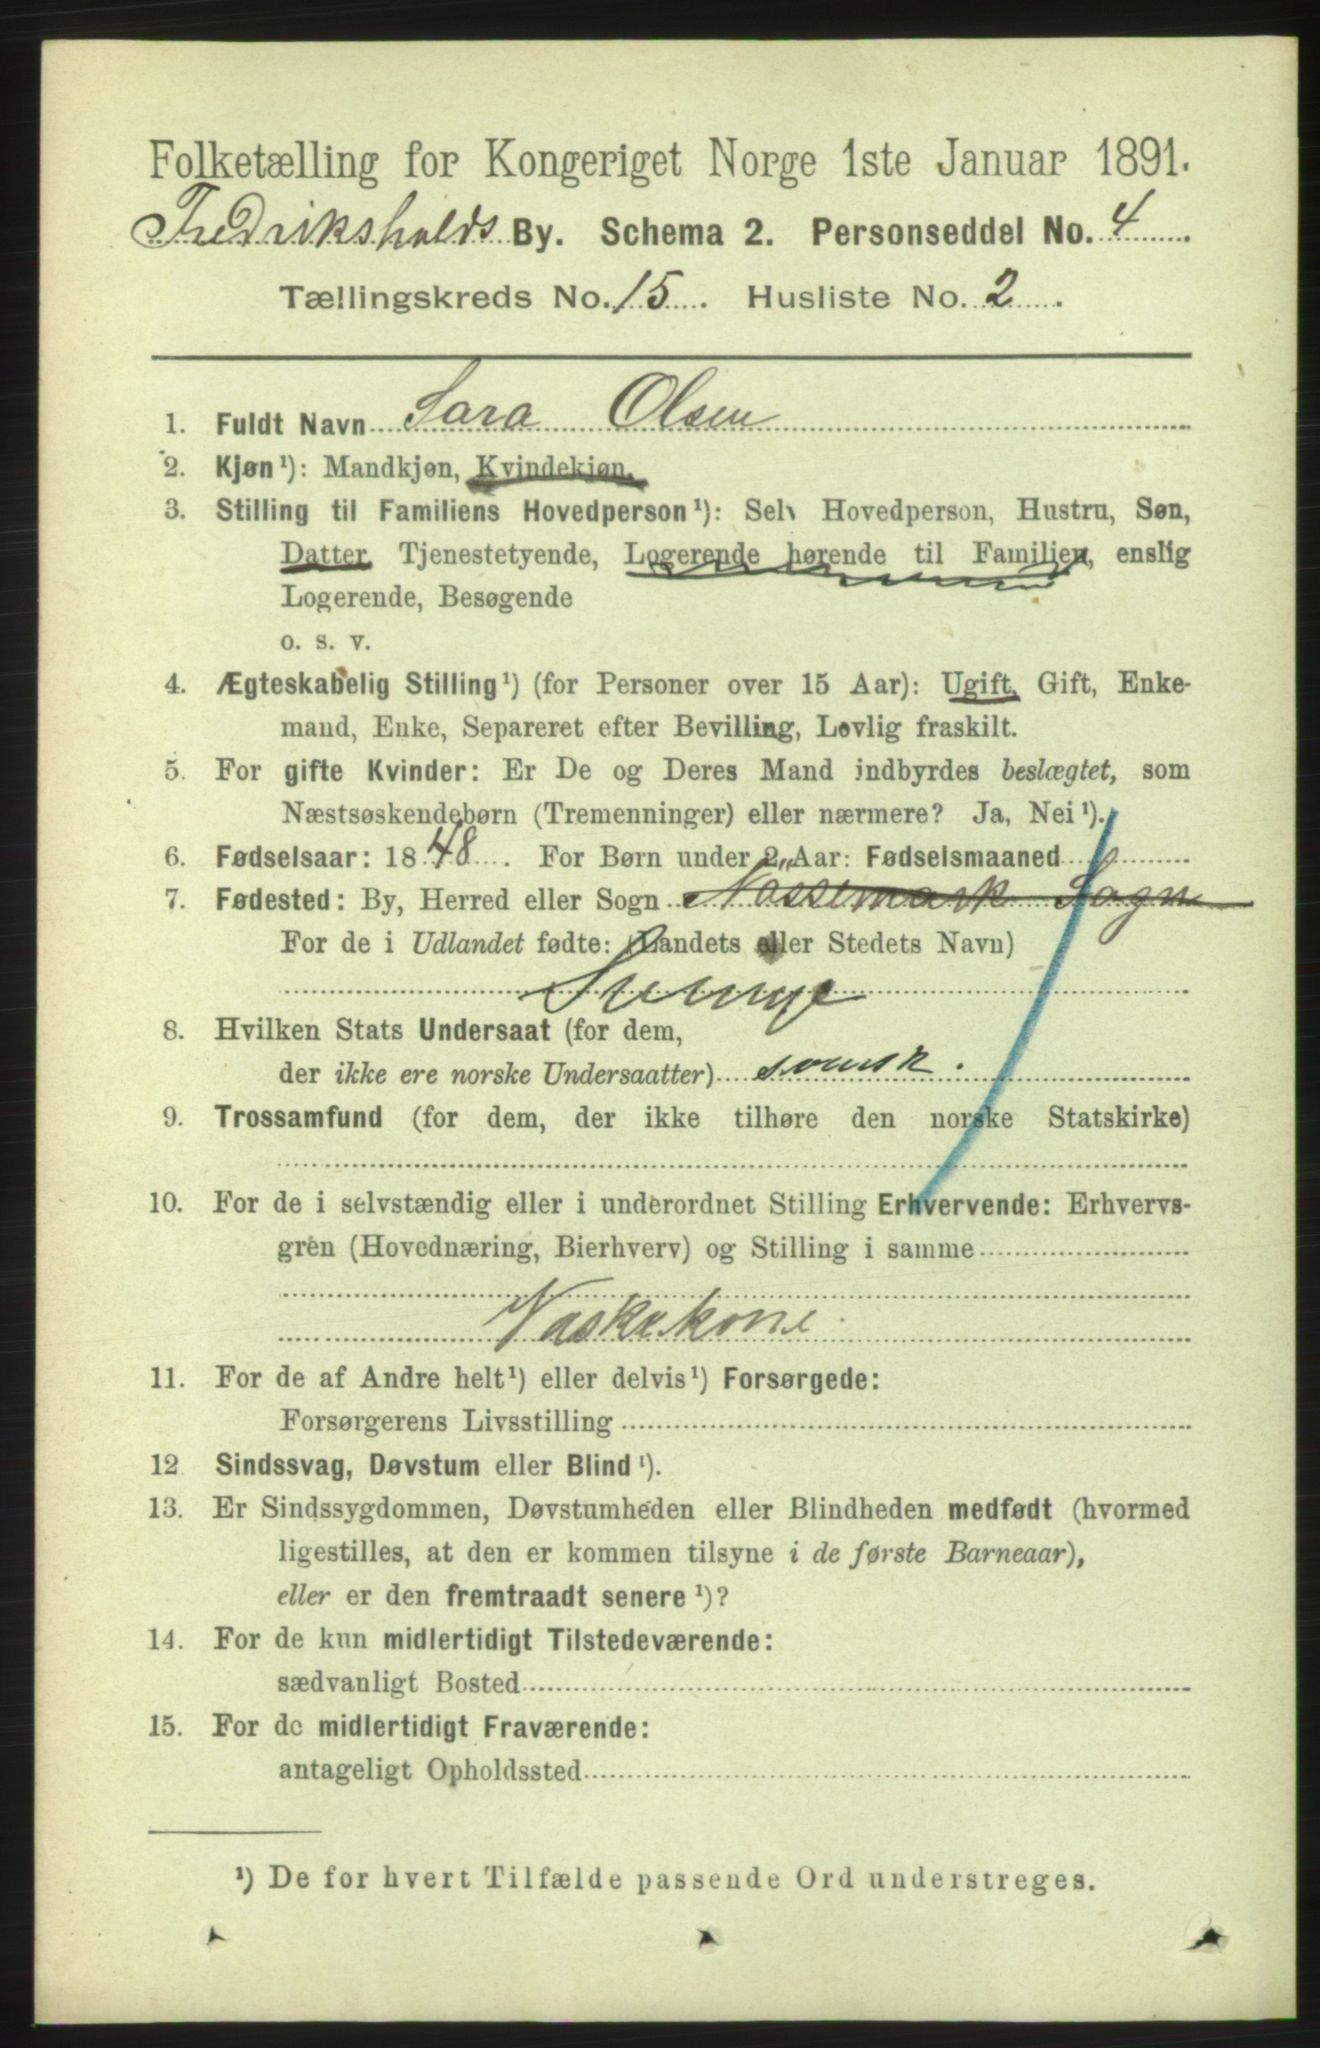 Folketælling for Kongeriget Norge 1ste Januar 1891.
Fredriksholds By. Schema 2. Personseddel No. 4
Tællingskreds No. 15. Husliste No. 2
1. Fuldt Navn Sara Olsen
2. Kjøn¹): Mandkjøn, Kvindekjøn.
3. Stilling til Familiens Hovedperson¹): Selv Hovedperson, Hustru, Søn,
Datter, Tjenestetyende, Logerende hørende til Familien, enslig
Logerende, Besøgende
o. s. v.
4. Ægteskabelig Stilling¹) (for Personer over 15 Aar): Ugift, Gift, Enke-
mand, Enke, Separeret efter Bevilling, Lovlig fraskilt.
5. For gifte Kvinder: Er De og Deres Mand indbyrdes beslægtet, som
Næstsøskendebørn (Tremenninger) eller nærmere? Ja, Nei¹).
6. Fødselsaar: 1848. For Børn under 2 Aar: Fødselsmaaned
7. Fødested: By, Herred eller Sogn Nössemark Sogn
For de i Udlandet fødte: (Landets eller Stedets Navn)
8. Hvilken Stats Undersaat (for dem,
der ikke ere norske Undersaatter) svensk.
9. Trossamfund (for dem, der ikke tilhøre den norske Statskirke)
10. For de i selvstændig eller i underordnet Stilling Erhvervende: Erhvervs-
gren (Hovednæring, Bierhverv) og Stilling i samme
Vaskekone
11. For de af Andre helt¹) eller delvis¹) Forsørgede:
Forsørgerens Livsstilling
12 Sindssvag, Døvstum eller Blind¹).
13. Er Sindssygdommen, Døvstumheden eller Blindheden medfødt (hvormed
ligestilles, at den er kommen tilsyne i de første Barneaar),
eller er den fremtraadt senere¹)?
14. For de kun midlertidigt Tilstedeværende:
sædvanligt Bosted
15. For de midlertidigt Fraværende:
antageligt Opholdssted
¹) De for hvert Tilfælde passende Ord understreges.